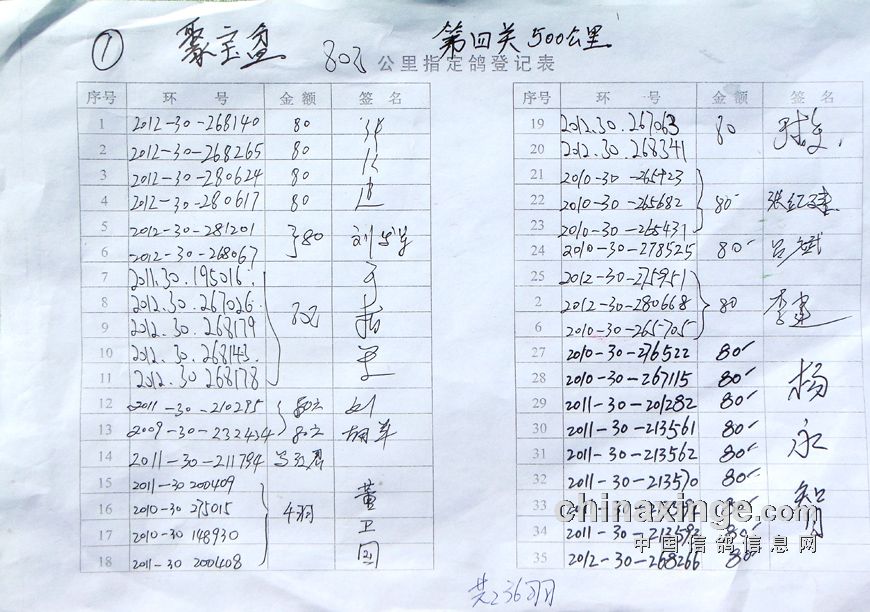 ① 聚宝盆 第四关 500公里
80元 公里指定鸽登记表
序号 环 号 金额 签 名
1 2012-30-268140 80
2 2012-30-268265 80
3 2012-30-280624 80
4 2012-30-280617 80
5 2012-30-281201
80 刘
6 2012-30-268067
7 2011.30.195016.
8 2012.30.267026.
80元
9 2012.30.268179
10 2012.30.268143.
11 2012.30.268178
12 2011-30-210295
13 2009-30-232434 80元
14 2011-30-211794
15 2011-30 200409
董
16 2010-30 275015 4羽
17 2010-30 148930 卫
18 2011-30 200408 国
序号 环 号 金额 签 名
19 2012.30.267063
80
20 2012.30.268341
21 2010-30-265923
22 2010-30-265682 80 张红建
23 2010-30-265431
24 2010-30-278525 80 吕斌
25 2012-30-275951
2 2012-30-280668 80 李建
6 2010-30-265705
27 2010-30-276522 80
28 2010-30-267115 80 杨
29 2011-30-201282 80
30 2011-30-213561 80
31 2011-30-213562 80 永
32 2011-30-213570 80
33 80 智
34 2011-30-213592 80
35 2012-30-268266 80
共236羽
chinaxinge.com
中国信鸽信息网